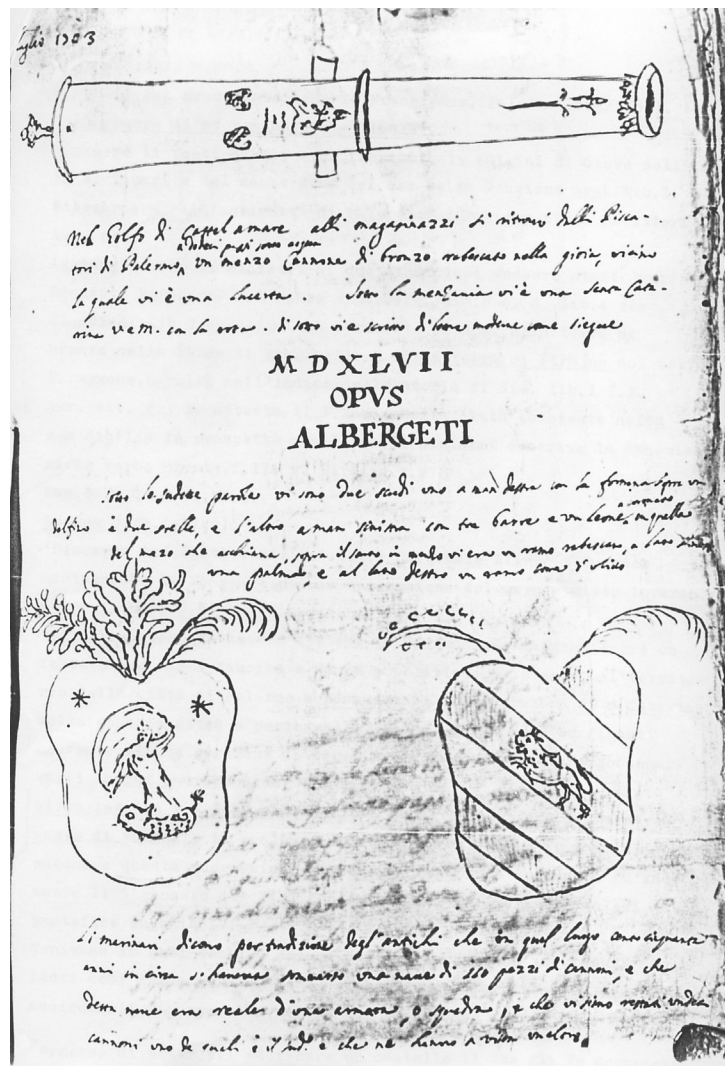 luglio 1703
Nel Golfo di Castel amare alli magasinazzi si ritrovò delli Pisca-
a dodeci passi sotto acqua
tori di Palermo, un menzo Cannone di bronzo rabescato nella gioia, vicino
la quale vi è una lacerta. Sotto la menzania vi è una Santa Cata-
rina V. e M. con la rota. di sotto vi è scritto di lettere maiuscole come siegue
M D X L V I I
OPVS
ALBERGETI
sotto le sudette parole vi sono due scudi uno a man destra con la fortuna sopra un
delfino è due stelle, e l'altro a man sinistra con tre barre e un leone, in quella
del mezo che acchiana, sopra il scudo in modo vi era un ramo rabescato, a lato
una palma e al lato destro un ramo come d'oliva
Li marinari dicono per tradizione degl'antichi che in quel luogo cento cinquanta
anni in circa si haveva sommerso una nave di 110 pezzi di cannoni, e che
detta nave era reale d'una armata, o squadra, e che vi siino restati undici
cannoni uno de quali è il sud.o e che ne hanno a vista un altro.